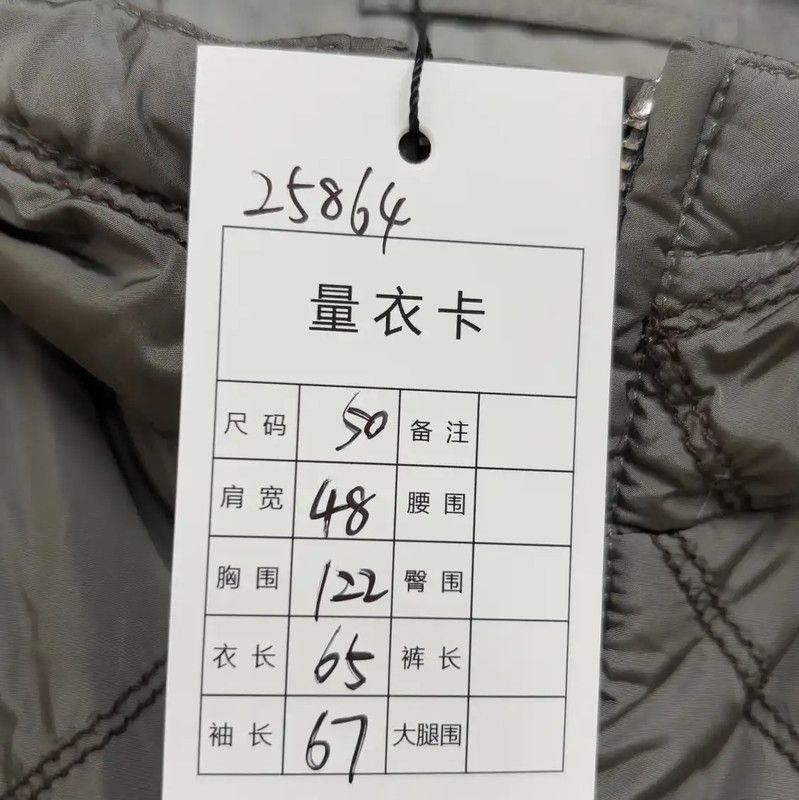 25864
量衣卡
尺码 50 备注
肩宽 48 腰围
胸围 122 臀围
衣长 65 裤长
袖长 67 大腿围